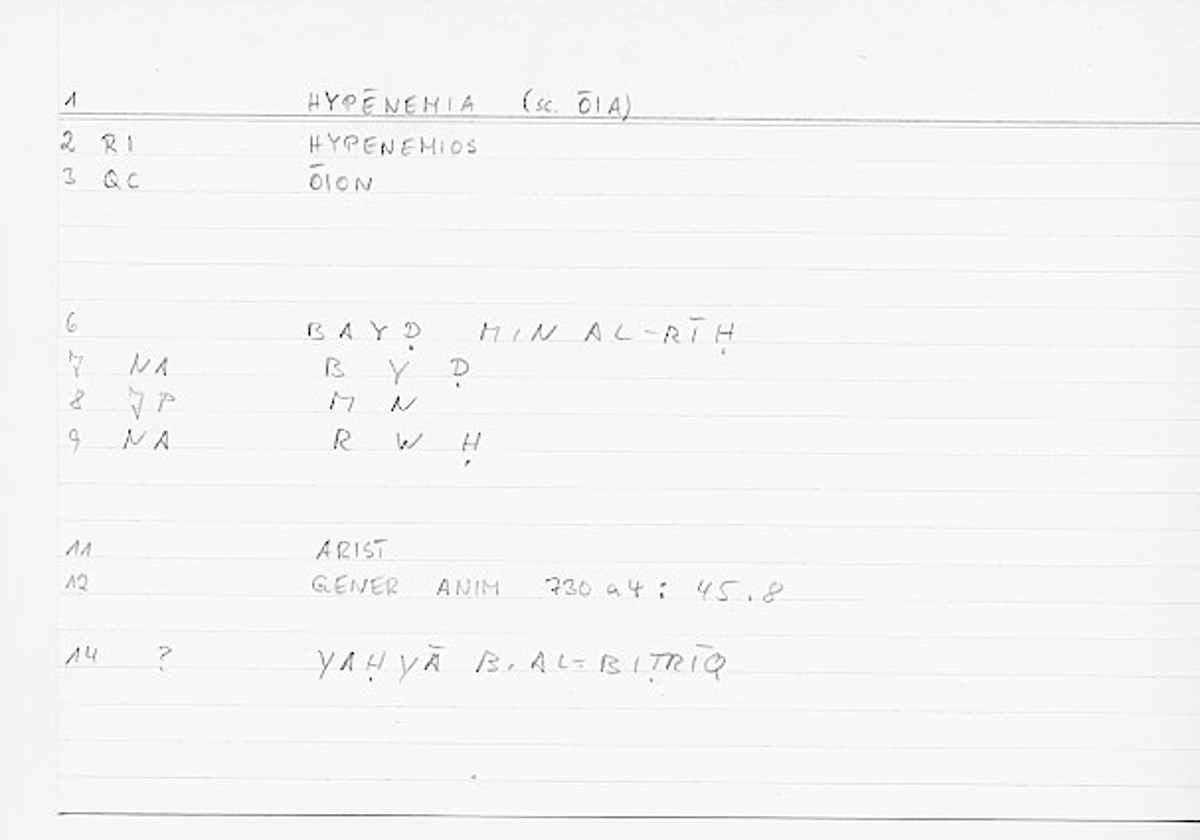 1 HYPĒNEMIA (sc. ŌIA)
2 RI HYPENEMIOS
3 QC ŌION
6 BAYḌ MIN AL-RĪḤ
7 NA B Y Ḍ
8 JP M N
9 NA R W Ḥ
11 ARIST
12 GENER ANIM 730 a 4 : 45.8
14 ? YAḤYĀ B. AL-BIṬRĪQ